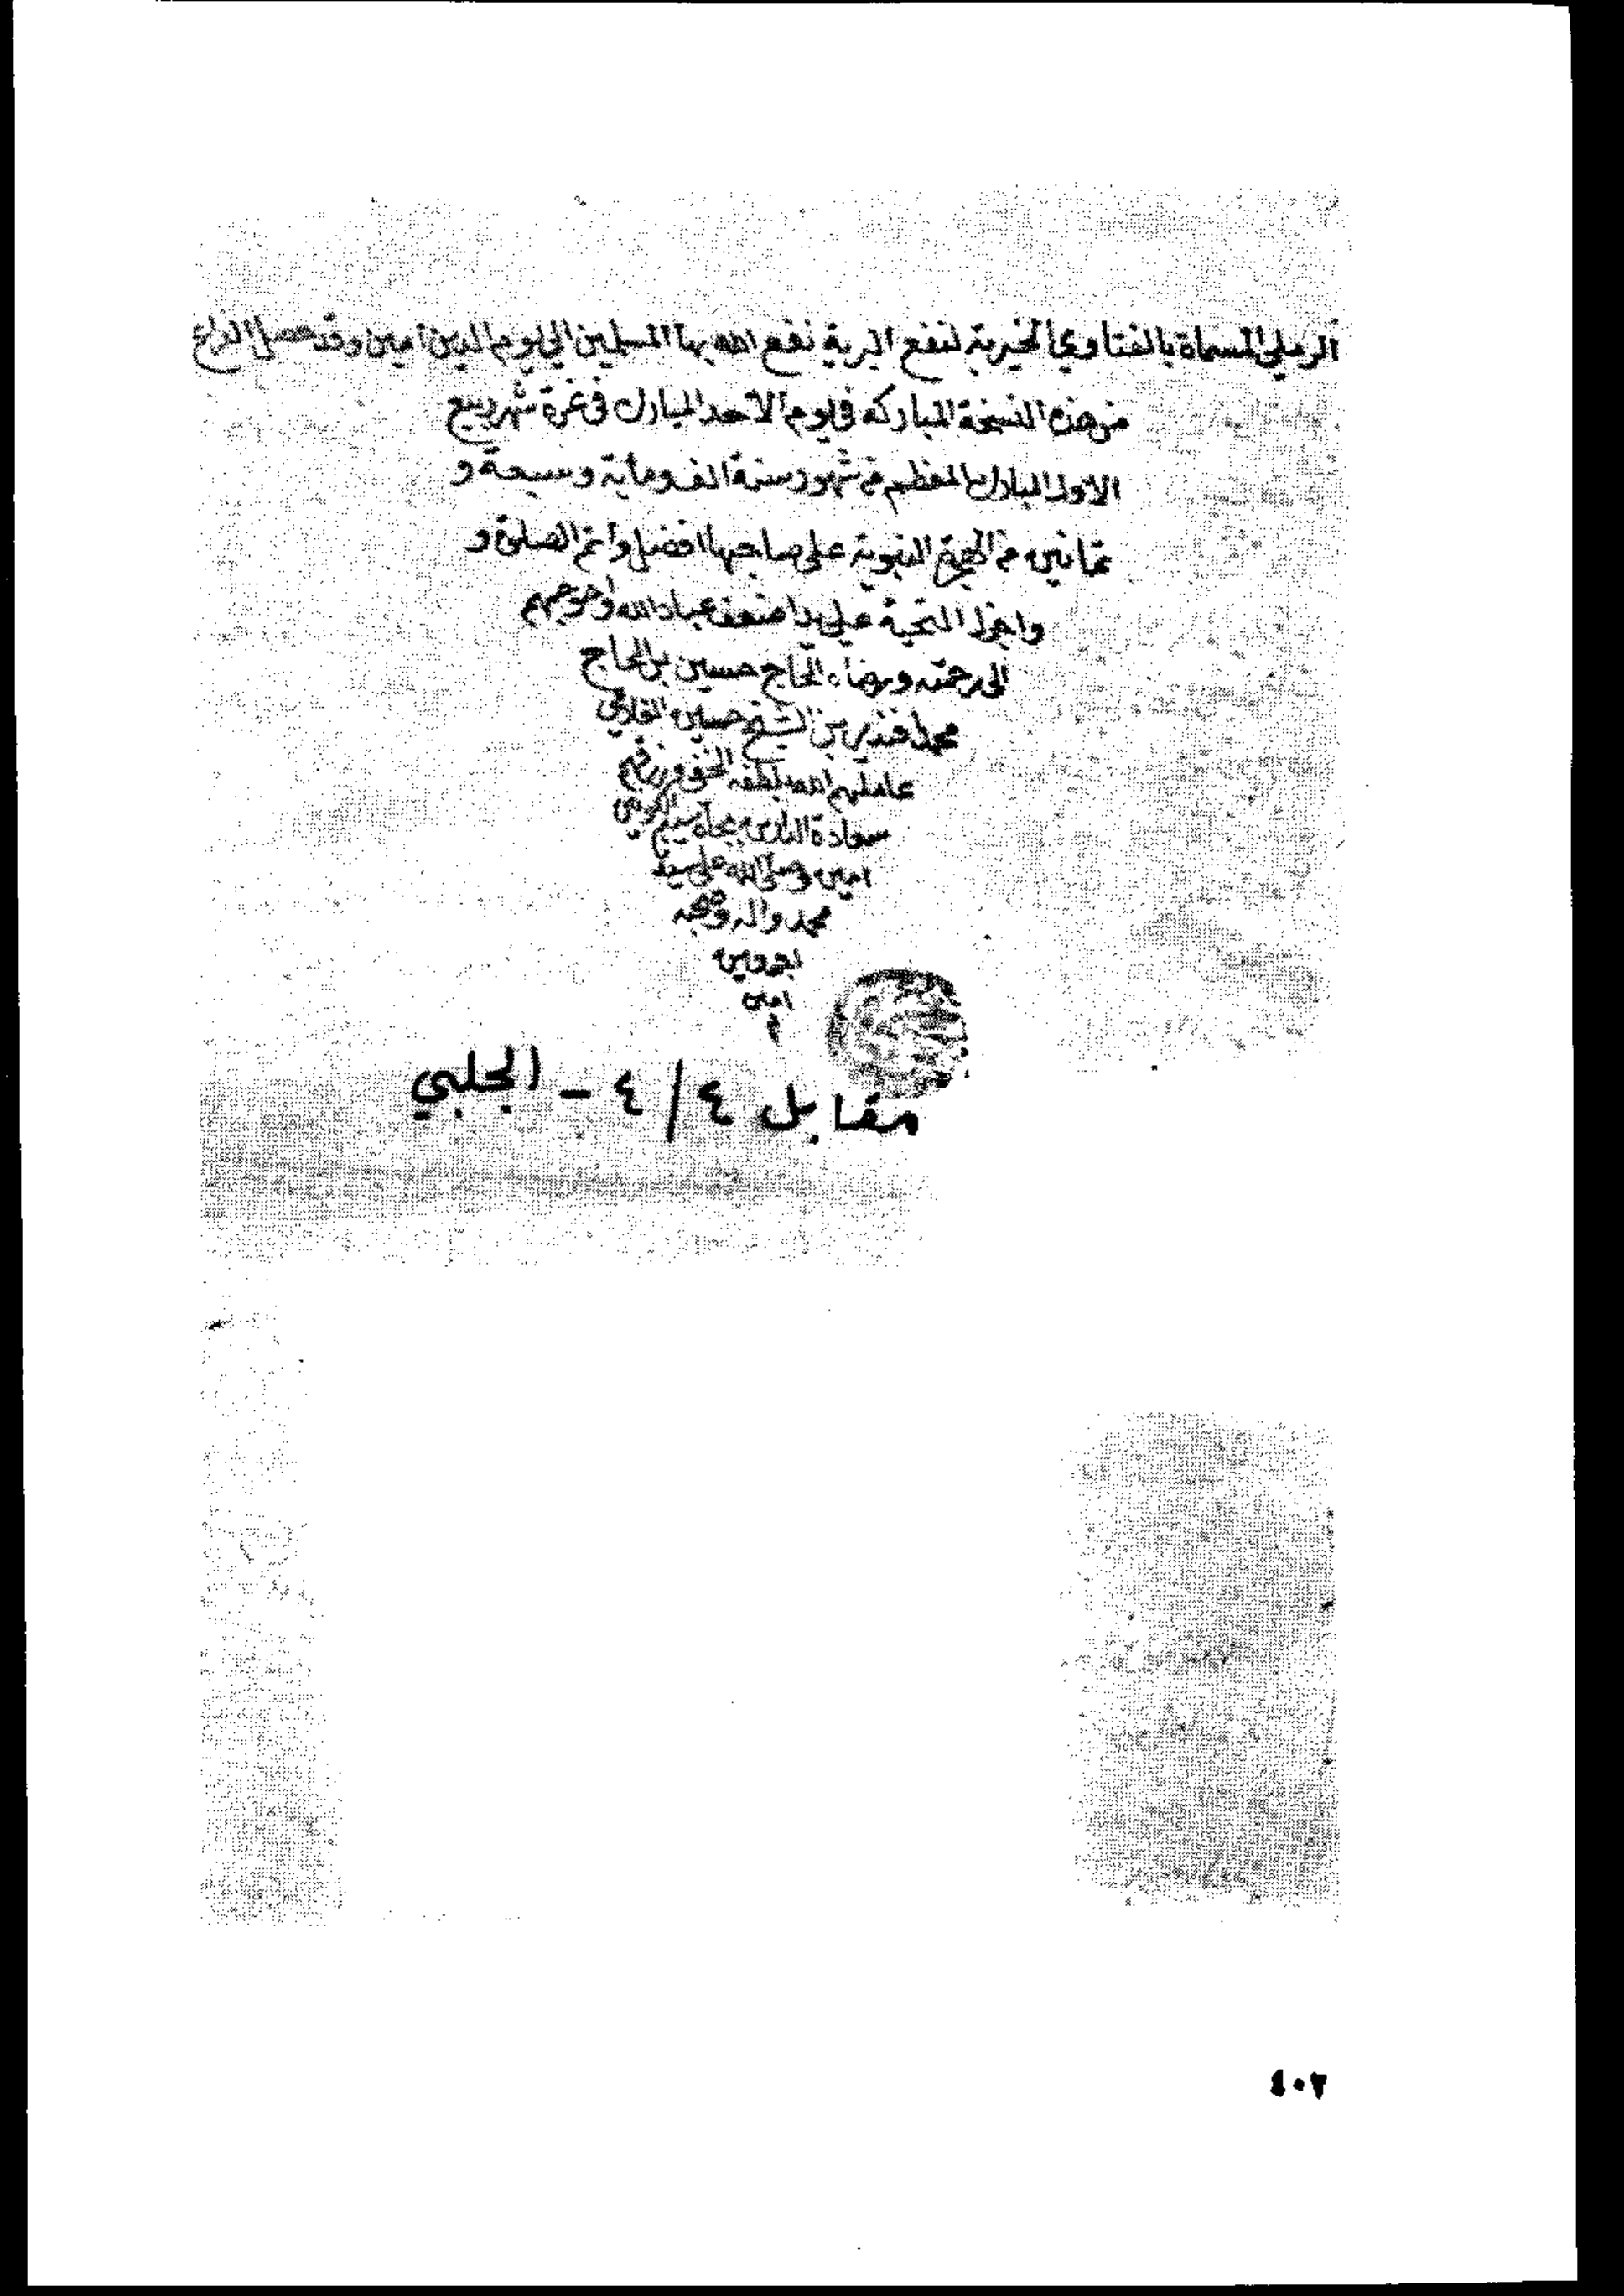 الرملي المسماة بالفتاوي الخيرية لنفع البرية نفع الله بها المسلمين الي يوم الدين امين وقد حصل الفراغ
من هذه النسخة المباركه في يوم الاحد المبارك في غرة شهر ربيع
الاول المبارك المعظم من شهور سنة الف وماية وسبعة و
ثمانين من الهجرة النبوية على صاحبها افضل واتم الصلوة و
واجزل التحية علي يد اضعف عباد الله واحوجهم
الى رحمته ورضاه الحاج حسين بن الحاج
محمد افندي بن الشيخ حسين
عاملهم الله بلطفه الخفي ورزقهم
سعادة الدارين بجاه سيد
امين وصلى الله على سيدنا
محمد واله وصحبه
اجمعين
امين
م
مقابل ٤/٤ - الجلبي
٤٠٢